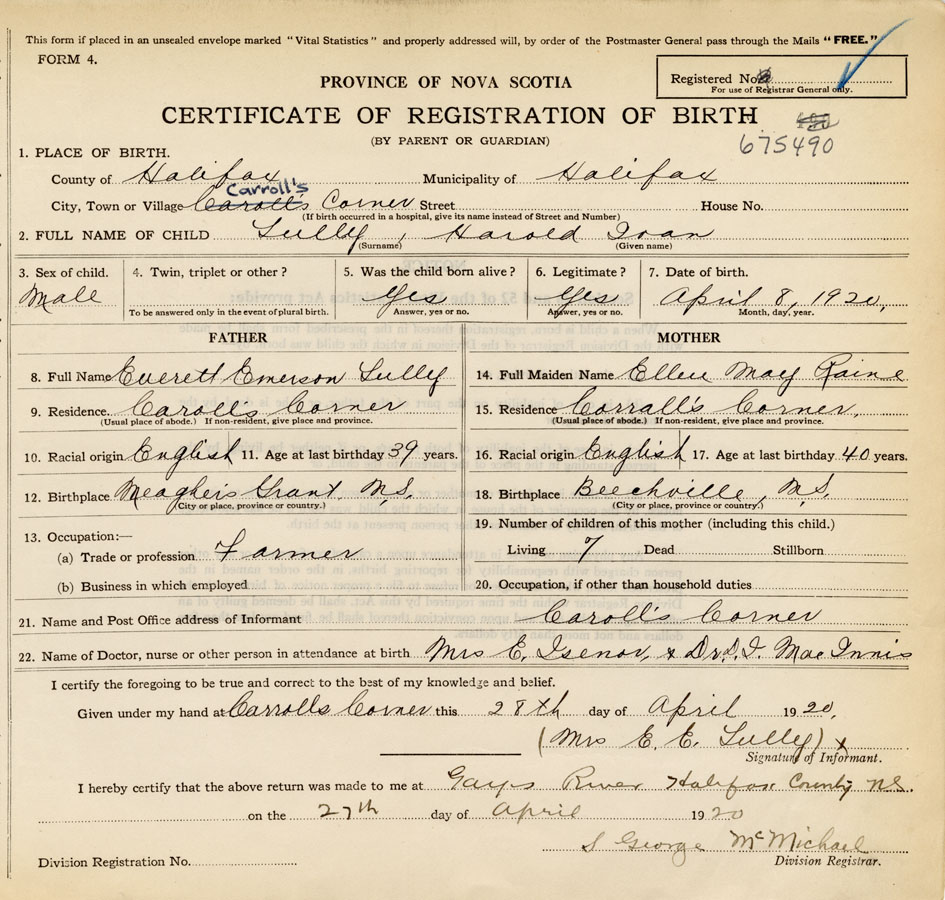 This form if placed in an unsealed envelope marked "Vital Statistics" and properly addressed will, by order of the Postmaster General pass through the Mails "FREE."
FORM 4.
Registered No.
For use of Registrar General only.
PROVINCE OF NOVA SCOTIA
CERTIFICATE OF REGISTRATION OF BIRTH
675490
(BY PARENT OR GUARDIAN)
1. PLACE OF BIRTH.
County of Halifax Municipality of Halifax
Carroll's
City, Town or Village Caroll's Corner Street House No.
(If birth occurred in a hospital, give its name instead of Street and Number)
2. FULL NAME OF CHILD Lully, Harold Ivan
(Surname) (Given name)
3. Sex of child. 4. Twin, triplet or other? 5. Was the child born alive? 6. Legitimate? 7. Date of birth.
Male Yes Yes April 8, 1920,
To be answered only in the event of plural birth. Answer, yes or no. Answer, yes or no. Month, day, year.
FATHER MOTHER
8. Full Name Everett Emerson Lully 14. Full Maiden Name Ellen May Raine
9. Residence. Carolls Corner 15. Residence Corrall's Corner,
(Usual place of abode.) If non-resident, give place and province. (Usual place of abode.) If non-resident, give place and province.
10. Racial origin English 11. Age at last birthday 39 years. 16. Racial origin English 17. Age at last birthday 40 years.
12. Birthplace Meaghers Grant, N.S. 18. Birthplace Beechville, N.S.
(City or place, province or country.) (City or place, province or country.)
13. Occupation:— 19. Number of children of this mother (including this child.)
(a) Trade or profession Farmer Living 7 Dead Stillborn
(b) Business in which employed 20. Occupation, if other than household duties
21. Name and Post Office address of Informant Caroll's Corner
22. Name of Doctor, nurse or other person in attendance at birth Mrs E. Isenor, & Dr. D. I. MacInnis
I certify the foregoing to be true and correct to the best of my knowledge and belief.
Given under my hand at Carrolls Corner this 28th day of April 1920,
(Mrs E. E. Lully) x
Signature of Informant.
I hereby certify that the above return was made to me at Gays River Halifax County NS.
on the 27th day of April 1920
S George McMichael
Division Registration No. Division Registrar.